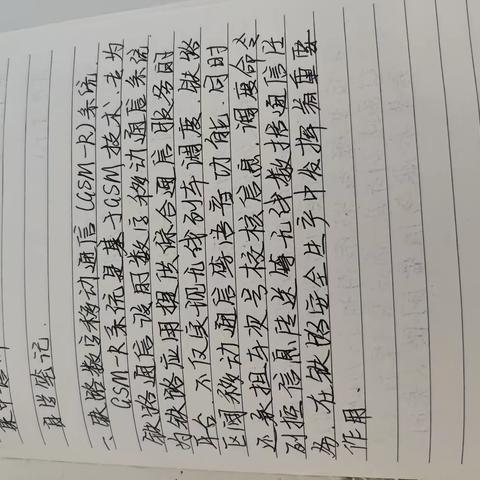 自学笔记.
一、铁路数字移动通信(GSM-R)系统.
GSM-R系统是基于GSM技术,专为
铁路通信设的数字移动通信系统
为铁路应用提供综合通信服务的
平台.不仅实现无线列车调度、铁路
区间移动通信等语音功能,同时
还承担车次号校核信息、调度命令
列控信息传送等无线数据通信任
务,在铁路安全生产中发挥着重要
作用.